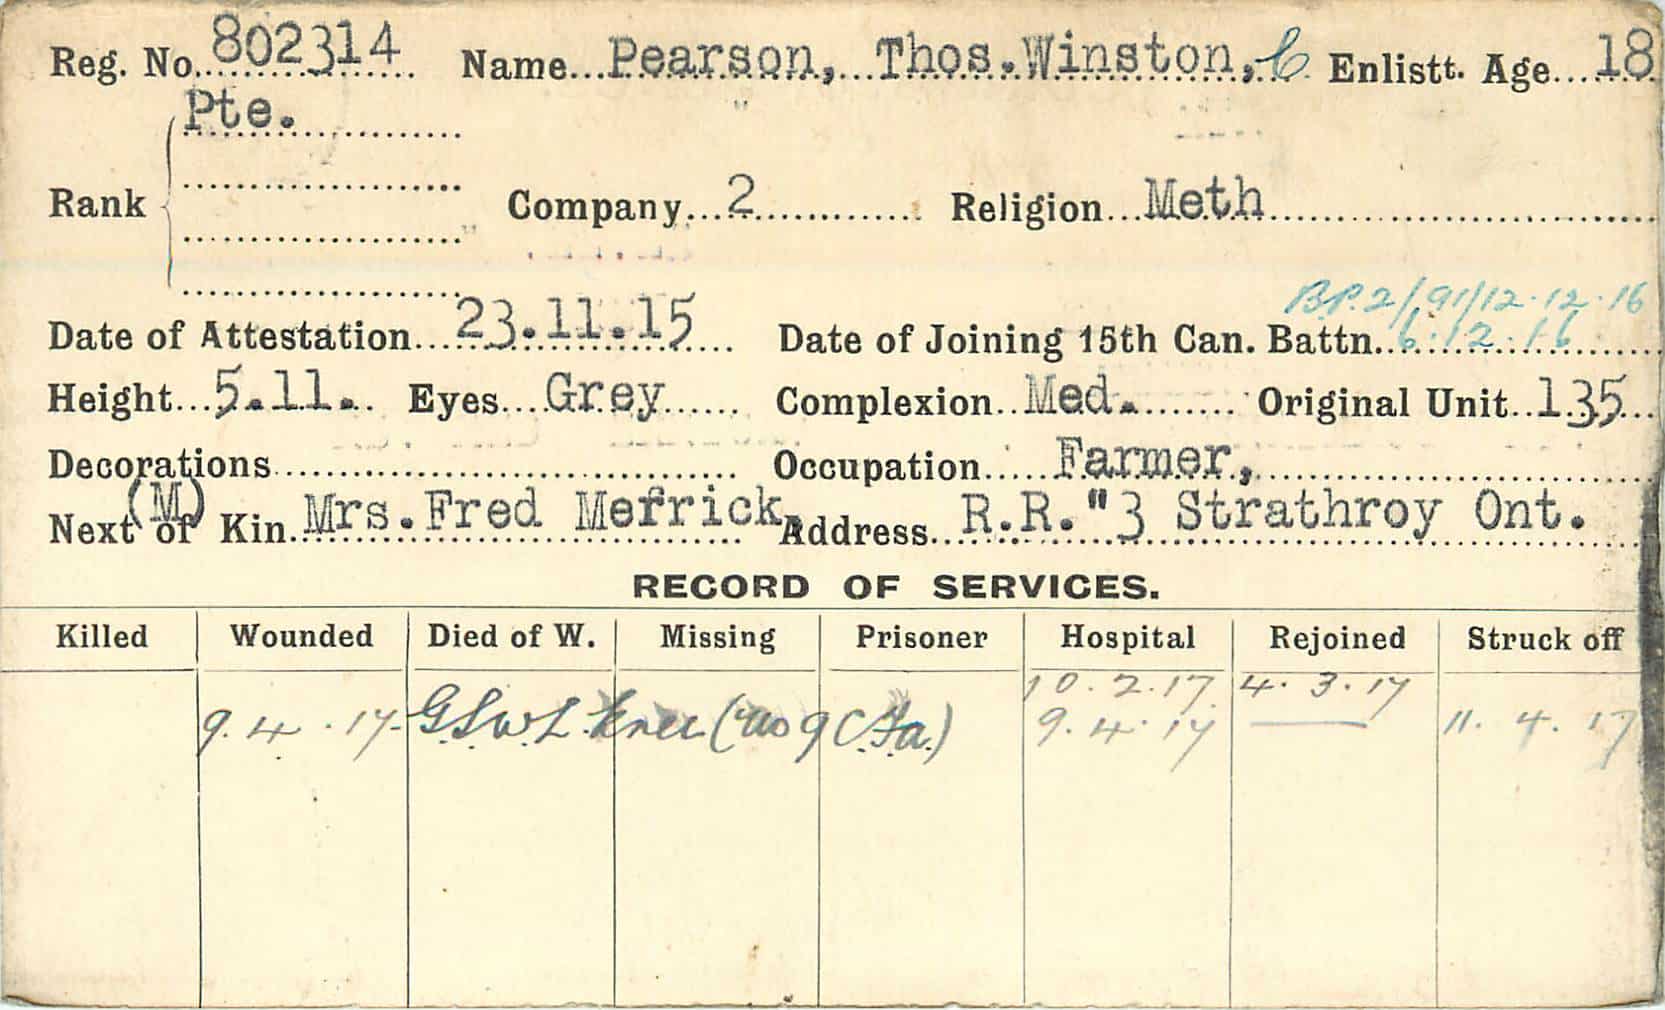 Reg. No. 802314 Name Pearson, Thos. Winston, C Enlistt. Age 18
Pte.
Rank Company 2 Religion Meth
B.P.2/91/12.12.16
Date of Attestation 23.11.15 Date of Joining 15th Can. Battn. 6.12.16
Height 5.11. Eyes Grey Complexion Med. Original Unit 135
Decorations Occupation Farmer,
(M)
Next of Kin. Mrs. Fred Merrick, Address R.R."3 Strathroy Ont.
RECORD OF SERVICES.
Killed Wounded Died of W. Missing Prisoner Hospital Rejoined Struck off
10.2.17. 4.3.17
9.4.17- GSW L Knee ( 9.4.17 11.4.17